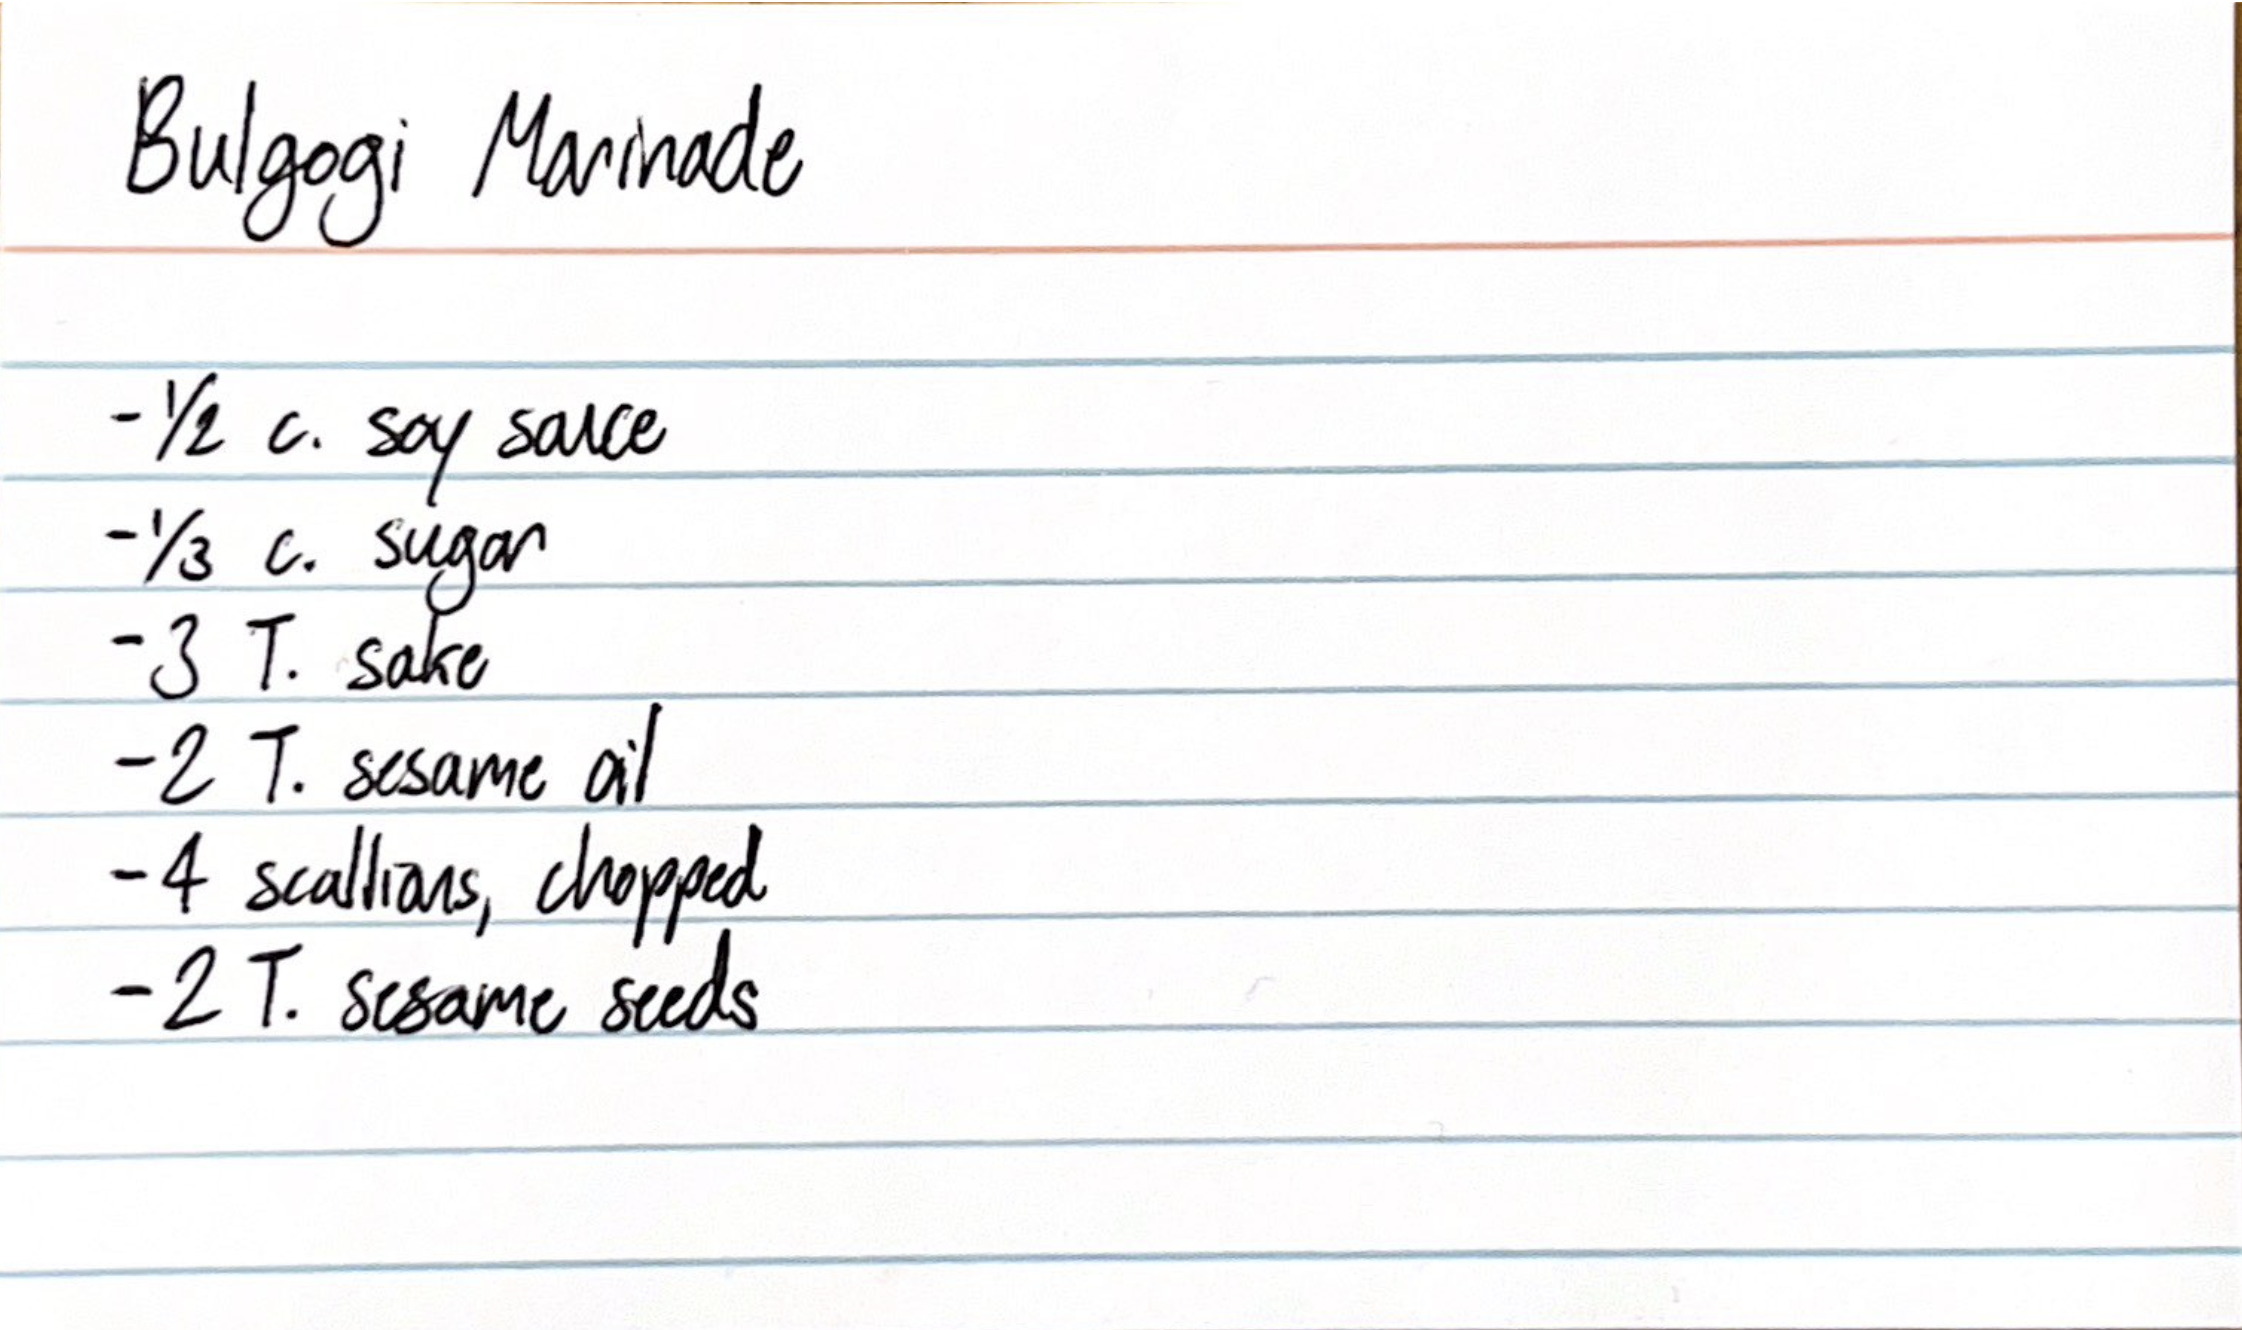 Bulgogi Marinade
-1/2 c. soy sauce
-1/3 c. sugar
-3 T. sake
-2 T. sesame oil
-4 scallions, chopped
-2 T. sesame seeds